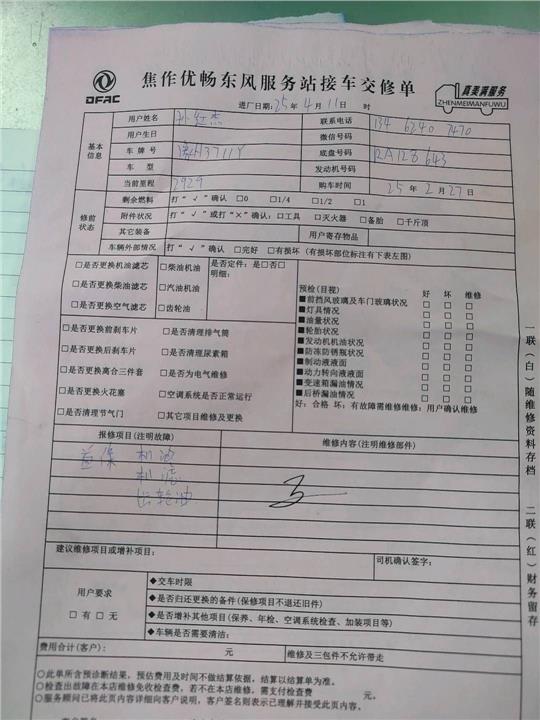 DFAC
焦作优畅东风服务站接车交修单
真美满服务
ZHENMEIMANFUWU
进厂日期: 25 年 4 月 11 日 时
基本信息
用户姓名 孙红杰 联系电话 134 6240 7470
用户生日 微信号码
车牌号 豫H3711Y 底盘号码 RA128643
车型 发动机号码
当前里程 2929 购车时间 25 年 2 月 27 日
修前状态
剩余燃料 打“√”确认 □0 □1/4 □1/2 □1
附件状况 打“√”或打“×”确认:□工具 □灭火器 □备胎 □千斤顶
其它装备 用户寄存物品
车辆外部情况 打“√”确认 □完好 □有损坏 (有损坏部位标注有下表左图)
□是否更换机油滤芯 □柴油机油 是否定件: 是□否□
□是否更换柴油滤芯 □汽油机油 明细:
□是否更换空气滤芯 □齿轮油
□是否更换前刹车片 □是否清理排气筒
□是否更换后刹车片 □是否清理尿素箱
□是否更换离合三件套 □是否为电气维修
□是否更换火花塞 □空调系统是否正常运行
□是否清理节气门 □其它项目维修及更换
预检(目视) 好 坏 维修
■前挡风玻璃及车门玻璃状况 □ □ □
■灯具情况 □ □ □
■油量状况 □ □ □
■轮胎状况 □ □ □
■发动机机油状况 □ □ □
■防冻防锈瓶状况 □ □ □
■制动液液面 □ □ □
■动力转向液液面 □ □ □
■变速箱漏油情况 □ □ □
■后桥漏油情况 □ □ □
好: 合格 坏: 有故障需维修维修: 用户确认维修
报修项目(注明故障) 维修内容(注明维修部件)
首保 机油
机滤
齿轮油
建议维修项目或增补项目: 司机确认签字:
用户要求
□有 □无
◆交车时限
◆是否归还更换的备件(保修项目不退还旧件)
◆是否增补其他项目(保养、年检、空调系统检查、加装项目等)
◆车辆是否需要清洁:
费用合计(客户): 元 维修及三包件不允许带走
○此单所含预诊断结果, 预估费用及时间不做结算依据, 结算以结算单为准。
○检查出故障在本店维修免收检查费, 若不在本店维修, 需支付检查费 元。
○服务顾问已将此页内容详细向客户说明, 客户签名则表示已理解并接受此页内容。
一联(白)随维修资料存档 二联(红)财务留存